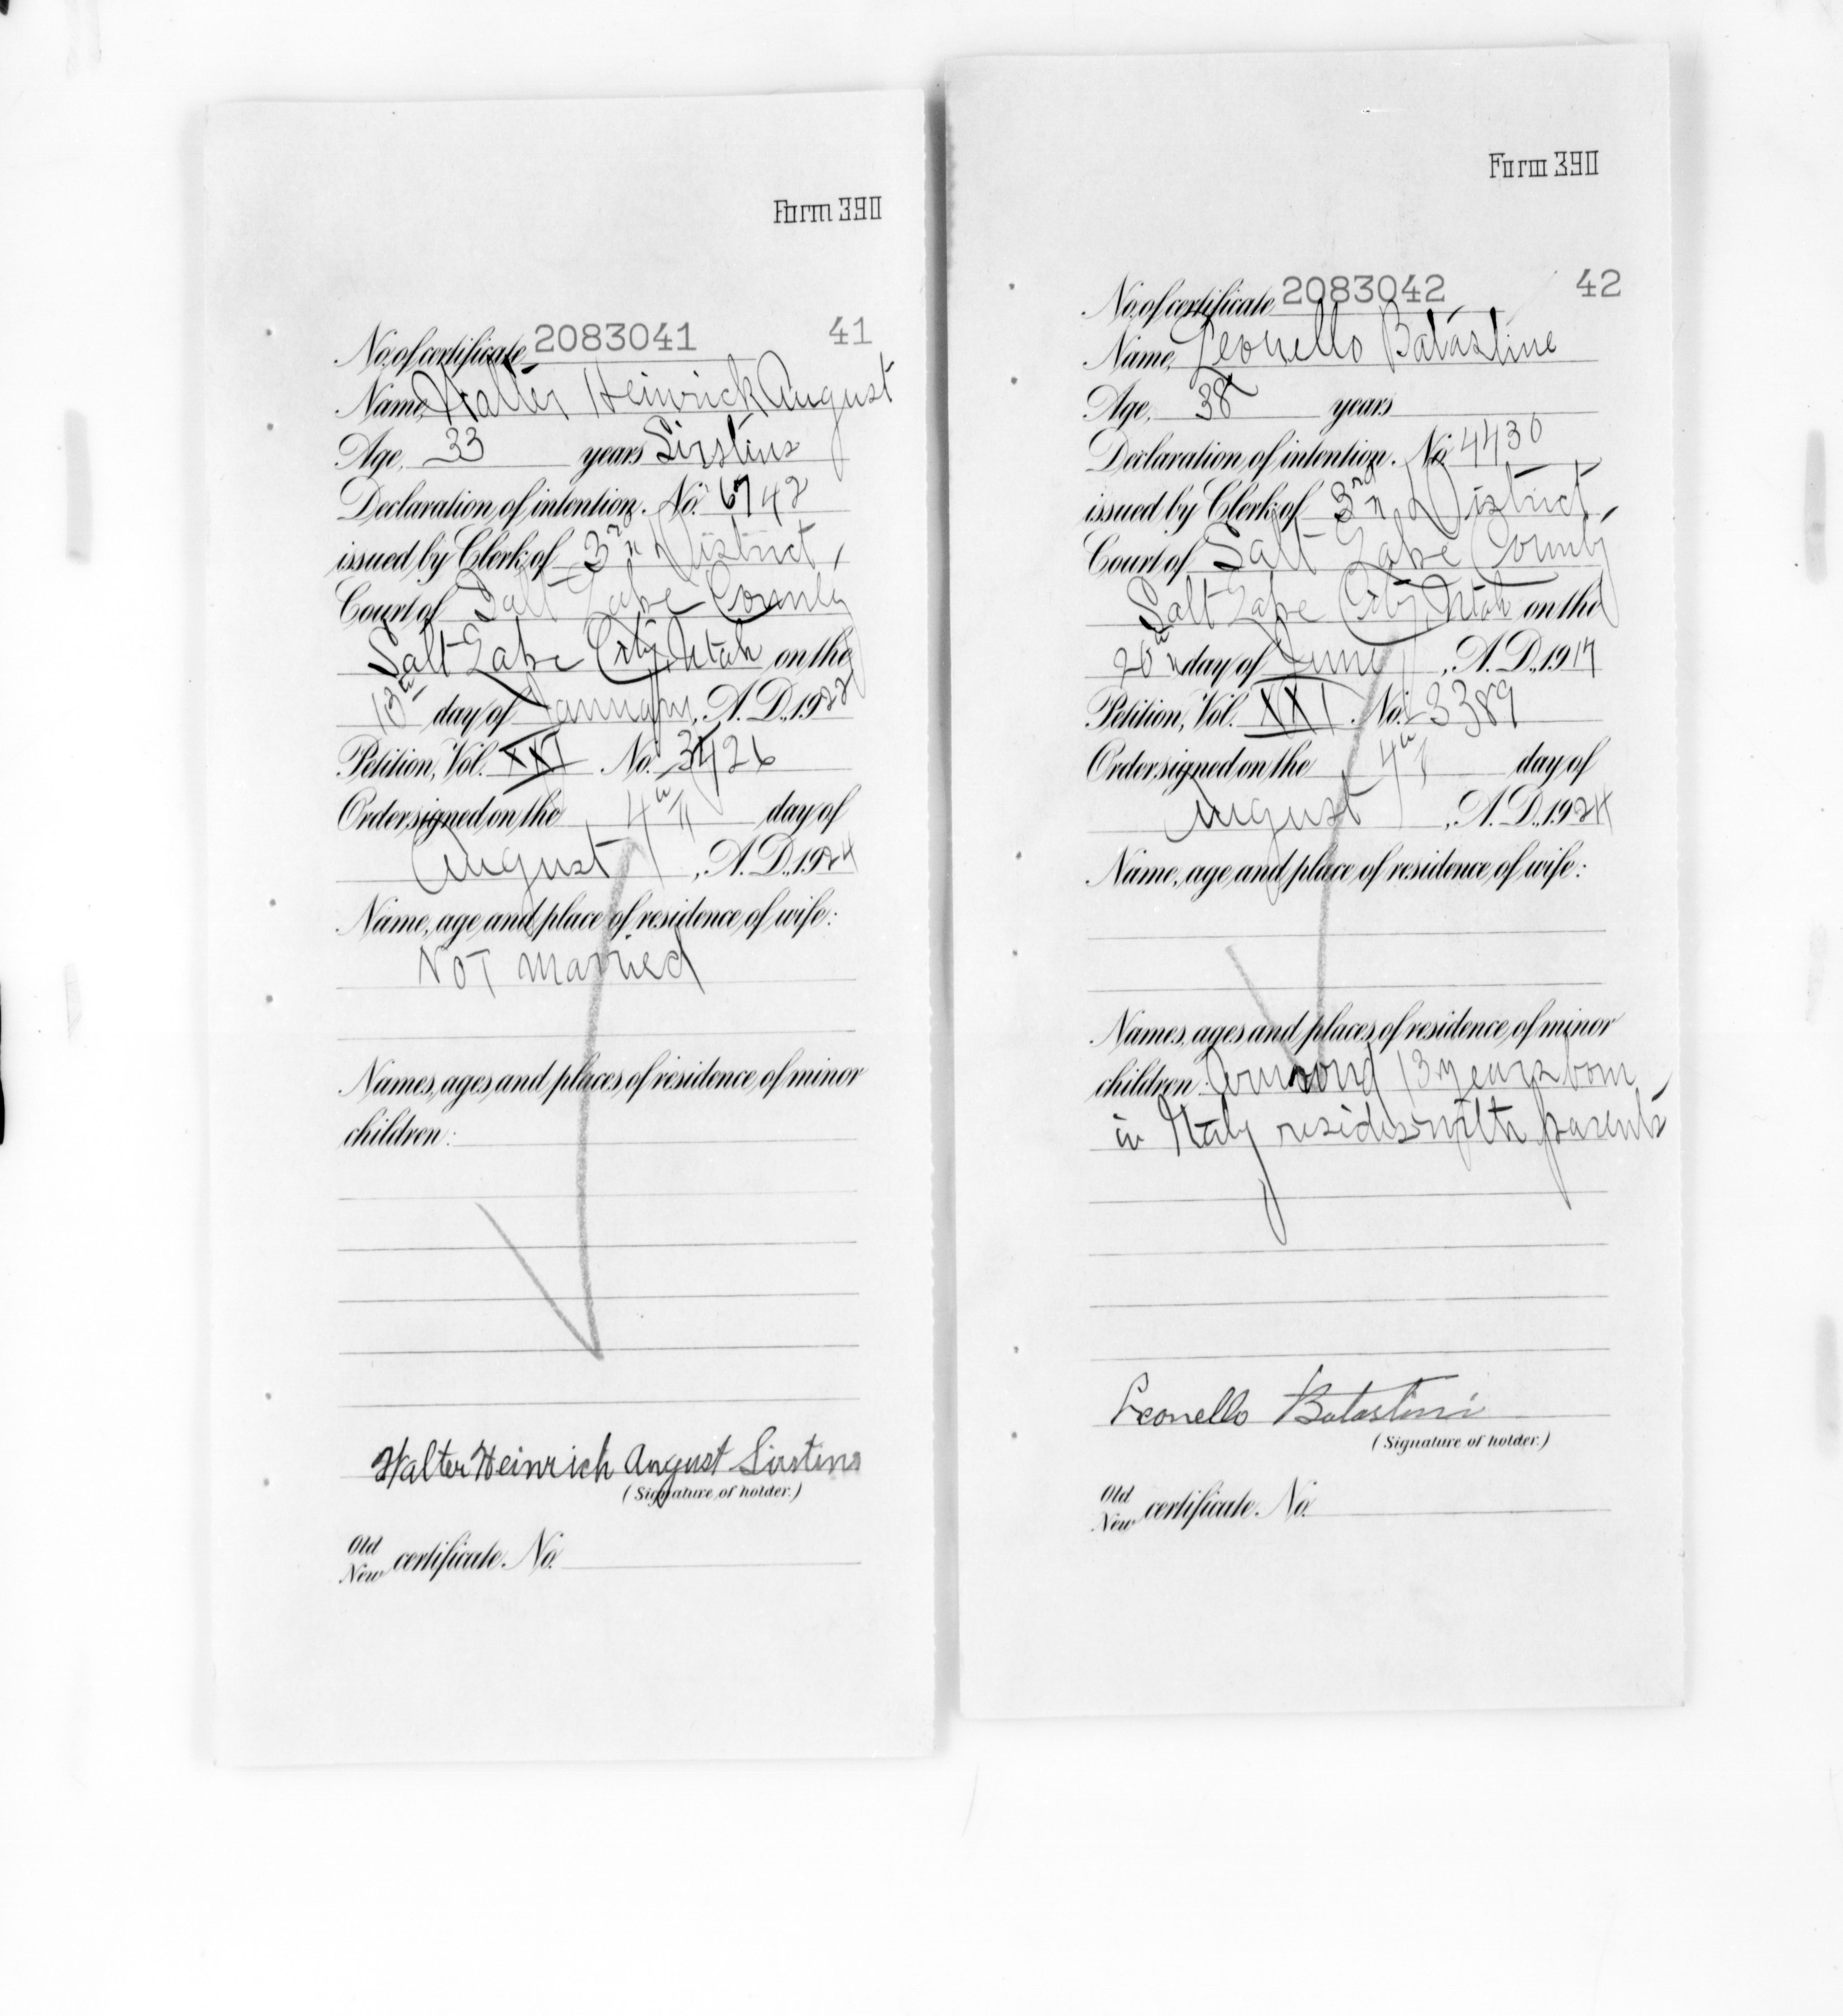 Form 390
No. of certificate 2083041 41
Name, Walter Heinrick August
Age, 33 years Sirstins
Declaration of intention, No. 6742
issued by Clerk of 3rd District
Court of Salt Lake County
Salt Lake City, Utah on the
13th day of January, A. D., 1922
Petition, Vol. XXI No. 3426
Order signed on the 4th day of
August, A. D., 1924
Name, age and place of residence of wife:
NOT married
Names, ages and places of residence of minor
children:
Walter Heinrich August Sirstins
(Signature of holder.)
Old
New certificate. No.
Form 390
No. of certificate 2083042 42
Name, Leonello Batastine
Age, 38 years
Declaration of intention. No. 4430
issued by Clerk of 3rd District,
Court of Salt Lake County
Salt Lake City, Utah on the
20th day of June, A. D., 1917
Petition, Vol. XXI. No. 3389
Order signed on the 4th day of
August, A. D., 1924
Name, age and place of residence of wife:
Names, ages and places of residence of minor
children: 13 years born
in Italy resides with parents
Leonello Batastini
(Signature of holder.)
Old
New certificate. No.